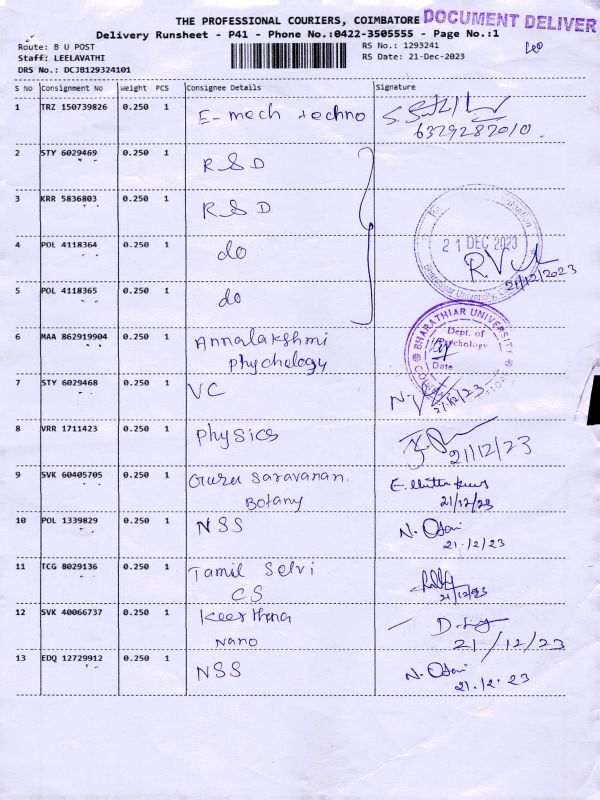 THE PROFESSIONAL COURIERS, COIMBATORE
DOCUMENT DELIVER
Delivery Runsheet - P41 - Phone No.:0422-3505555 - Page No.:1
Route: B U POST
RS No.: 1293241
Staff: LEELAVATHI
RS Date: 21-Dec-2023
DRS No.: DCJB129324101
S No Consignment No Weight PCS Consignee Details Signature
1 TRZ 150739826 0.250 1 E-mech techno
6379287010.
2 STY 6029469 0.250 1 R&D
3 KRR 5836803 0.250 1 R&D
4 POL 4118364 0.250 1 do
21 DEC 2023
21/12/2023
5 POL 4118365 0.250 1 do
6 MAA 862919904 0.250 1 Annalakshmi
Phychology
BHARATHIAR UNIVERSITY
Dept. of
Psychology
Date
7 STY 6029468 0.250 1 VC
21/12/23
8 VRR 1711423 0.250 1 Physics
21/12/23
9 SVK 60405705 0.250 1 Guru Saravanan.
Botany
21/12/23
10 POL 1339829 0.250 1 NSS
21.12/23
11 TCG 8029136 0.250 1 Tamil Selvi
CS
21/12/23
12 SVK 40066737 0.250 1 Keerthana
Nano
21/12/23
13 EDQ 12729912 0.250 1 NSS
21.12.23